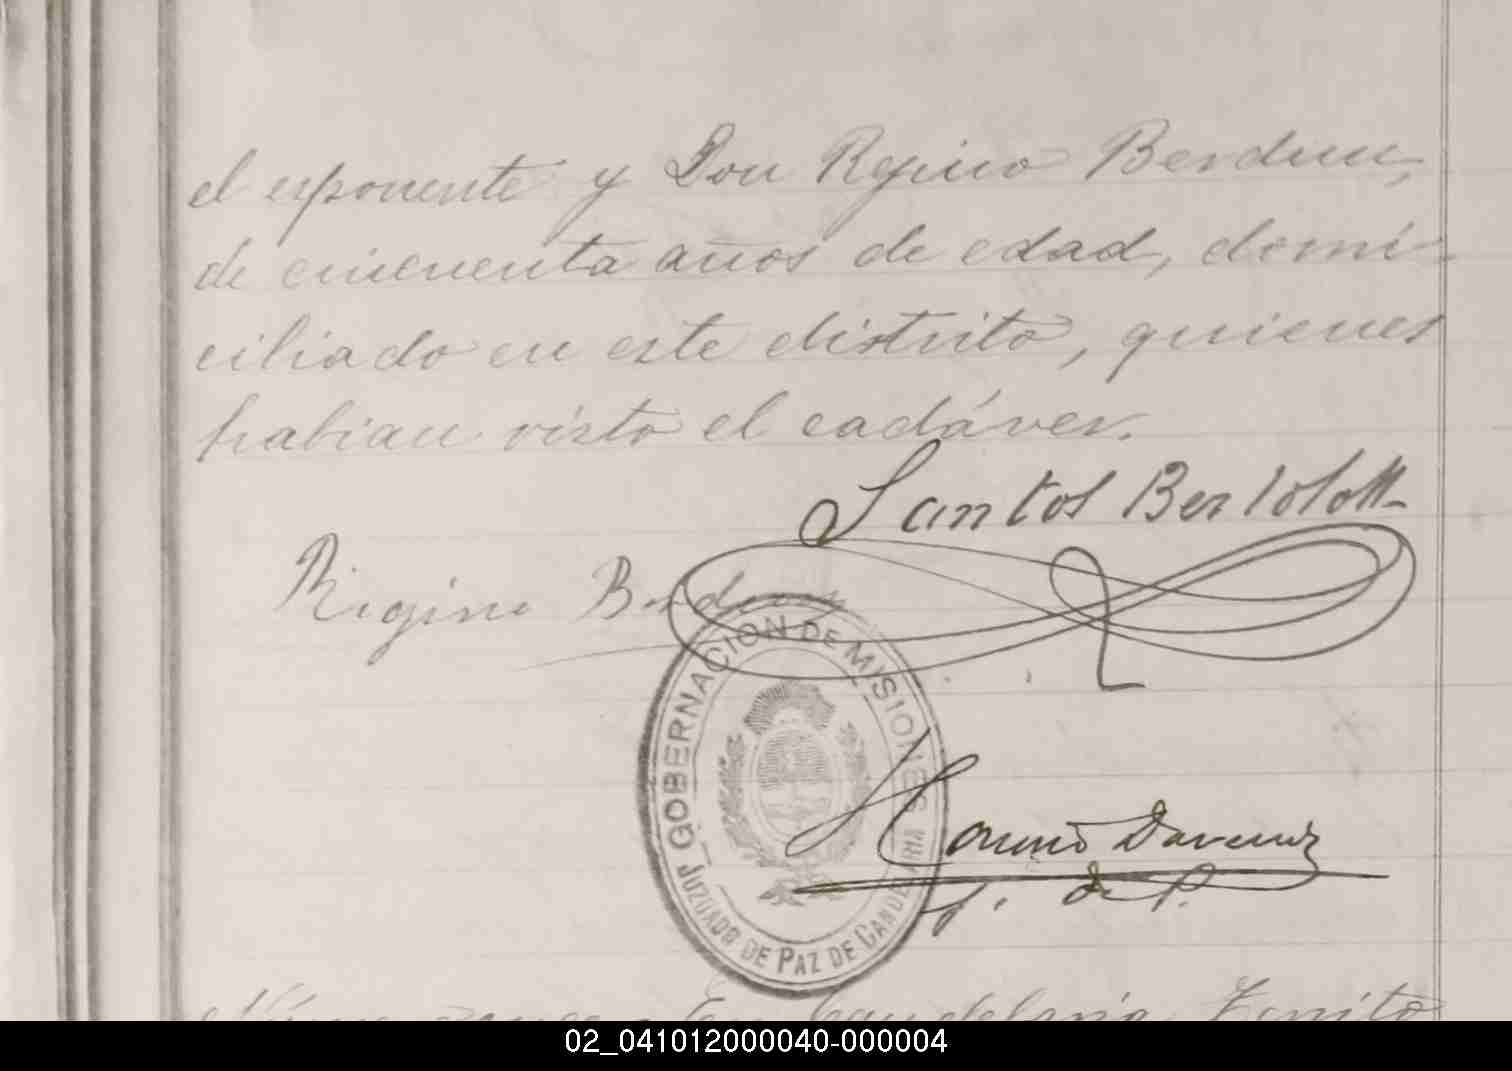 el esponente y Don Regino Berdun,
de cincuenta años de edad, domi-
ciliado en este distrito, quienes
habian visto el cadáver.
Santos Bertolotti
Rigino Berdun
GOBERNACION DE MISIONES
JUZGADO DE PAZ DE CANDELARIA
J. de P.
Candelaria, Territo
02_041012000040-000004